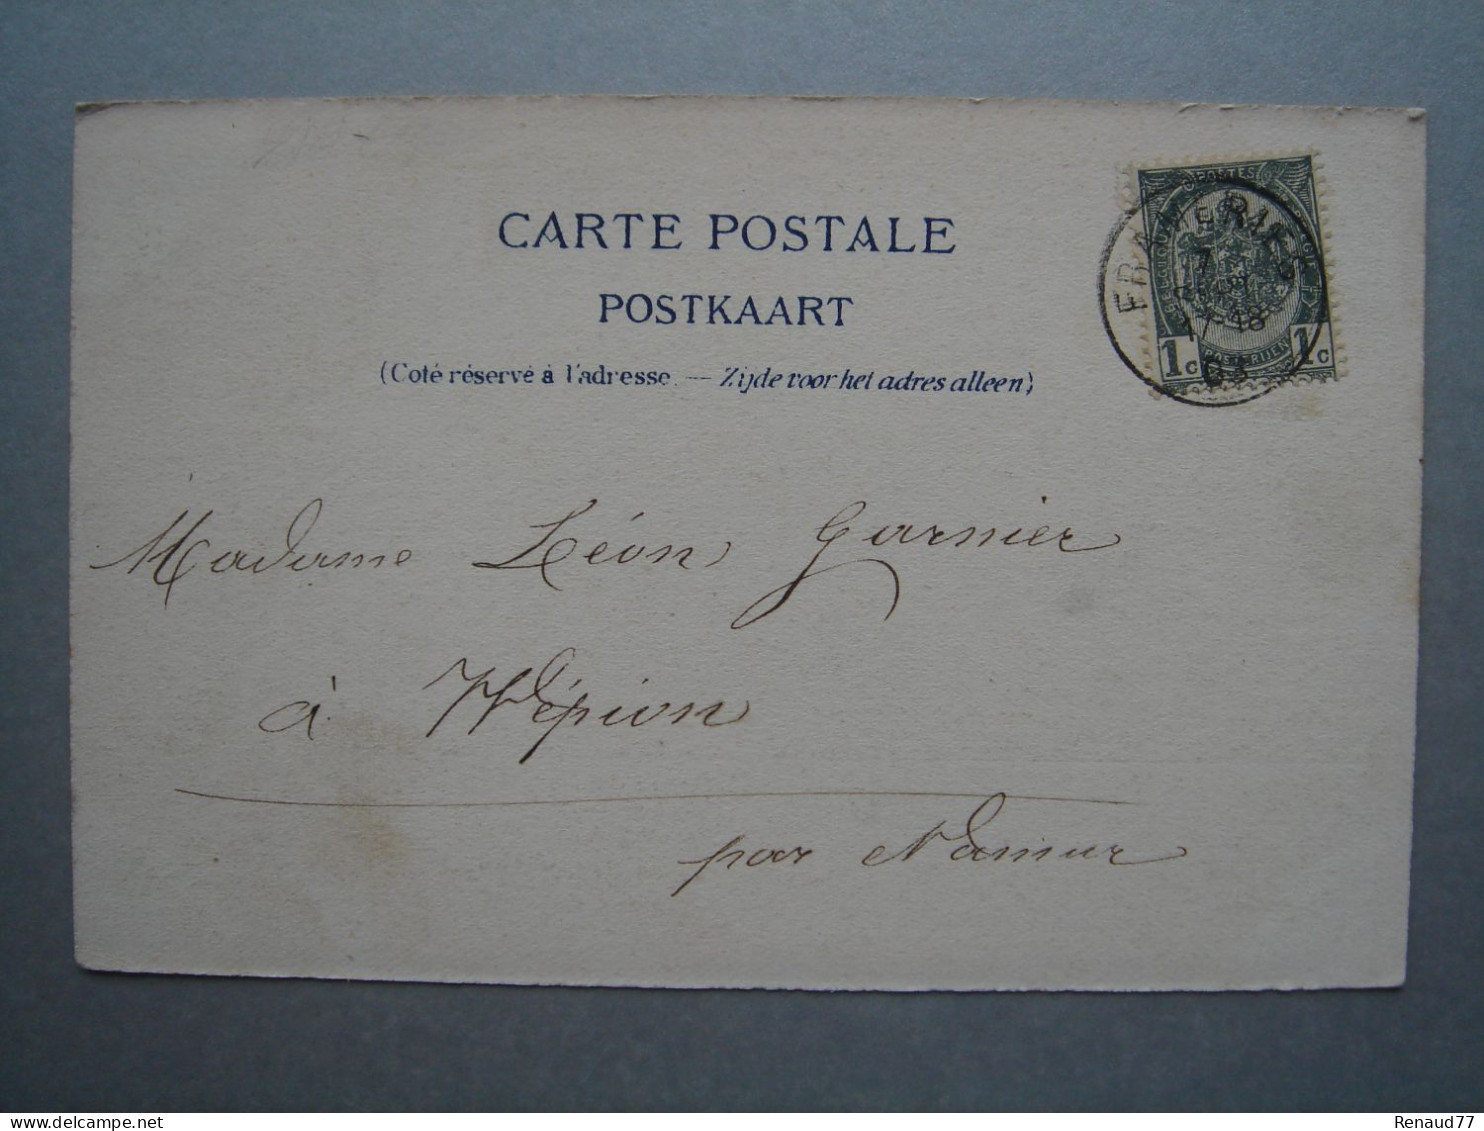 CARTE POSTALE
POSTKAART
(Coté réservé à l'adresse. — Zijde voor het adres alleen)
POSTES
FRAMERIES
17
17-18
03
1c POSTERIJEN 1c
Madame Léon Garnier
à Wépion
par Namur
Renaud77